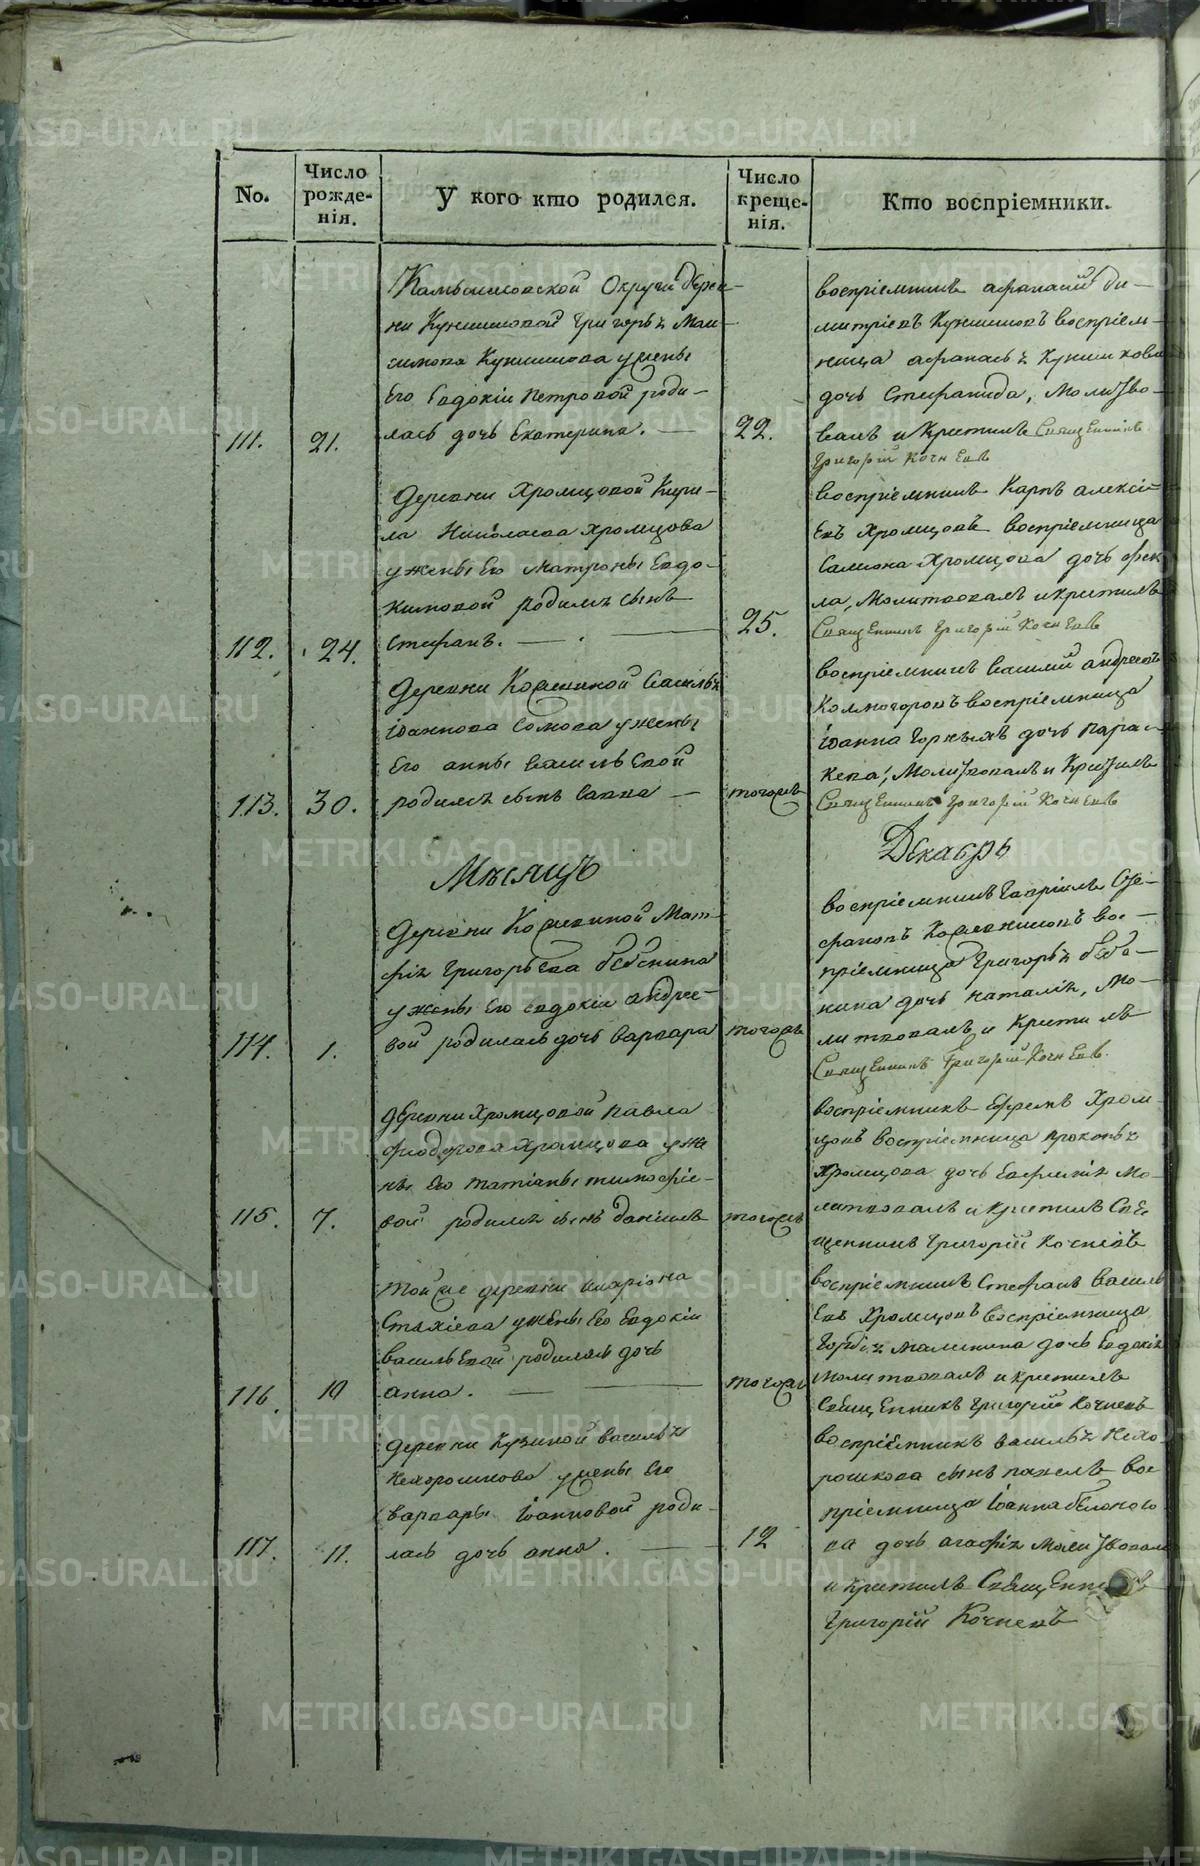 No.
Число рожде-нія.
У кого кто родился.
Число креще-нія.
Кто воспріемники.
Камышловской Округи дерев-
ни Кукшиловой Григорья Мак-
симова у жены
Его Евдокіи Петровой роди-
111. 21. лась дочь Екатерина. 22.
воспріемникъ афанасій ди-
митріевъ воспріем-
ница афанасья
дочь Стефанида, Молитво-
валъ и Крестилъ Священникъ
Григорій Кочневъ
Деревни Хромцовой Кири-
ла Николаева Хромцова
у жены Его Матроны Евдо-
кимовой родился сынъ
112. 24. Стефанъ. 25.
воспріемникъ Карпъ алексі-
евъ Хромцовъ воспріемница
Хромцова дочь фек
ла, Молитвовалъ и крестилъ
Священникъ Григорій Кочневъ
Деревни Кожевиной Василья
Іоаннова Сомова у жены
Его анны Васильевой
113. 30. родился сынъ Савва тогожъ
воспріемникъ Василій андреевъ
Колмогоровъ воспріемница
Іоанна Горныхъ дочь Парас-
кева, Молитвовалъ и Крестилъ
Священникъ Григорій Кочневъ
Мѣсяцъ Декабрь
Деревни Кожевиной Мат-
фія Григорьева бабкина
у жены Его евдокіи андрее-
114. 1. вой родилась дочь варвара тогожъ
воспріемникъ Гавріилъ Сте-
фановъ Кожевниковъ вос-
пріемница Григорья
дочь наталія, Мо-
литвовалъ и Крестилъ
Священникъ Григорій Кочневъ.
деревни Хромцовой Павла
Фиодорова Хромцова у же
ны Его татіаны тимофіе-
115. 7. вой родился сынъ даніилъ тогожъ
воспріемникъ Ефремъ Хром-
цовъ воспріемница прокопья
Хромцова дочь Евфимія Мо-
литвовалъ и крестилъ Свя-
щенникъ Григорій Кочневъ
той же деревни иларіона
Стахіева у жены Его Евдокіи
васильевой родилась дочь
116. 10 анна. тогожъ
воспріемникъ Стефанъ Василь
евъ Хромцовъ воспріемница
малинина дочь Евдокія
Молитвовалъ и крестилъ
Священникъ Григорій Кочневъ
деревни Кузиной василья
Нехорошкова у жены Его
варвары Іоанновой роди-
117. 11. лась дочь анна. 12
воспріемникъ василья Нехо-
рошкова сынъ павелъ вос
пріемница Іоанна бѣлоного-
ва дочь агафія Молитвовалъ
и крестилъ Священникъ
Григорій Кочневъ
METRIKI.GASO-URAL.RU